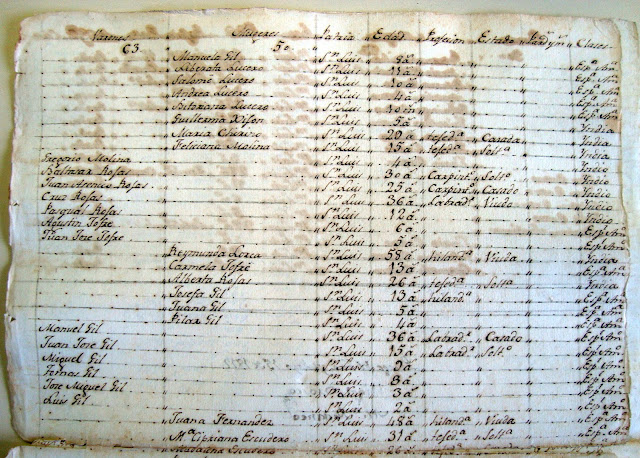 Varones " Mugeres " Patria " Edad " Profecion " Estado " " Clases
63 50
Manuela Gil " Sn Luis " 8 a " Espa Ama
Liberata Lucero " Sn Luis " 11 a " Espa Ama
Salomé Lucero " Sn Luis " 10 a " Espa Ama
Andrea Lucero " Sn Luis " 4 a " Espa Ama
Lucero " Sn Luis " Espa Ama
Guillerma " Sn Luis " 5 a " India
Maria " Sn Luis " 20 a " tefeda " Casada " India
Feliciana Molina " Sn Luis " 15 a " tefeda " Solta " India
Gregorio Molina " Sn Luis " 4 a " Indio
Baltazar Rosas " Sn Luis " 30 a " Carpinto " Solto " Indio
Juan Rosas " Sn Luis " 25 a " Carpinto " Casado " Indio
Cruz Rosas " Sn Luis " 36 a " Labrador " Viudo " Indio
Pasqual Rosas " Sn Luis " 12 a " Indio
Agustin Jofre " Sn Luis " 6 a " Esp Amo
Juan Jose Jofre " Sn Luis " 5 a " Esp Amo
Reymunda " Sn Luis " 58 a " hilanda " Viuda " India
Carmela Jofre " Sn Luis " 13 a " Espa Ama
Alberta Rosas " Sn Luis " 26 a " tefeda " Solta " India
Josefa Gil " Sn Luis " 13 a " hilanda " Espa Ama
Juana Gil " Sn Luis " 5 a " Espa Ama
Pilar Gil " Sn Luis " 4 a " Espa Ama
Manuel Gil " Sn Luis " 36 a " Labrador " Casado " Esp Amo
Juan Jose Gil " Sn Luis " 15 a " Labrador " Solto " Esp Amo
Miguel Gil " Sn Luis " Esp Amo
Tomas Gil " Sn Luis " 8 a " Esp Amo
Jose Miguel Gil " Sn Luis " 3 a " Esp Amo
Luis Gil " Sn Luis " 2 a " Esp Amo
Juana Fernandez " Sn Luis " 48 a " hilanda " Viuda " Espa Ama
Ma Cipriana Escudero " Sn Luis " 31 a " tefeda " Solta " Espa Ama
Escudero " Sn Luis